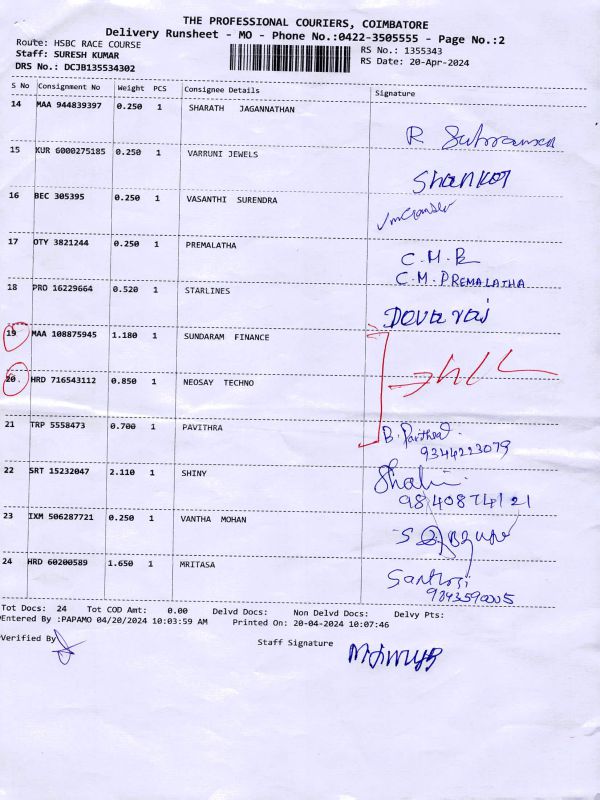 THE PROFESSIONAL COURIERS, COIMBATORE
Delivery Runsheet - MO - Phone No.:0422-3505555 - Page No.:2
Route: HSBC RACE COURSE
RS No.: 1355343
Staff: SURESH KUMAR
RS Date: 20-Apr-2024
DRS No.: DCJB135534302
S No Consignment No Weight PCS Consignee Details Signature
14 MAA 944839397 0.250 1 SHARATH JAGANNATHAN
R
15 KUR 6000275185 0.250 1 VARRUNI JEWELS
Shankar
16 BEC 305395 0.250 1 VASANTHI SURENDRA
17 OTY 3821244 0.250 1 PREMALATHA
C.M.P
C.M.PREMALATHA
18 PRO 16229664 0.520 1 STARLINES
19 MAA 108875945 1.180 1 SUNDARAM FINANCE
20. HRD 716543112 0.850 1 NEOSAY TECHNO
21 TRP 5558473 0.700 1 PAVITHRA
B.
9344223079
22 SRT 15232047 2.110 1 SHINY
9840874121
23 IXM 506287721 0.250 1 VANTHA MOHAN
24 HRD 60200589 1.650 1 MRITASA
9843590005
Tot Docs: 24 Tot COD Amt: 0.00 Delvd Docs: Non Delvd Docs: Delvy Pts:
Entered By :PAPAMO 04/20/2024 10:03:59 AM Printed On: 20-04-2024 10:07:46
Verified By
Staff Signature